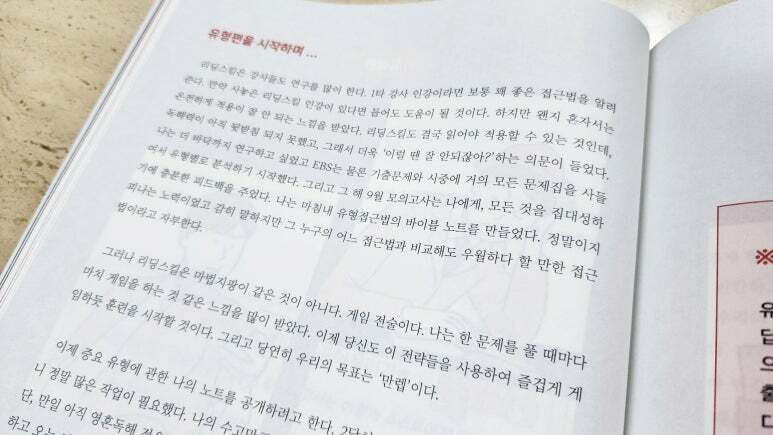 유형편을 시작하며 ...
리딩스킬은 강사들도 연구를 많이 한다. 1타 강사 인강이라면 보통 꽤 좋은 접근법을 알려
준다. 만약 사놓은 리딩스킬 인강이 있다면 들어도 도움이 될 것이다. 하지만 왠지 혼자서는
온전하게 적용이 잘 안 되는 느낌을 받았다. 리딩스킬도 결국 읽어야 적용할 수 있는 것인데,
독해력이 아직 뒷받침 되지 못했고, 그래서 더욱 '이럴 땐 잘 안되잖아?'하는 의문이 들었다.
나는 더 바닥까지 연구하고 싶었고 EBS는 물론 기출문제와 시중에 거의 모든 문제집을 사들
여서 유형별로 분석하기 시작했다. 그리고 그 해 9월 모의고사는 나에게, 모든 것을 집대성하
기에 충분한 피드백을 주었다. 나는 마침내 유형접근법의 바이블 노트를 만들었다. 정말이지
피나는 노력이었고 감히 말하지만 그 누구의 어느 접근법과 비교해도 우월하다 할 만한 접근
법이라고 자부한다.
그러나 리딩스킬은 마법지팡이 같은 것이 아니다. 게임 전술이다. 나는 한 문제를 풀 때마다
마치 게임을 하는 것 같은 느낌을 많이 받았다. 이제 당신도 이 전략들을 사용하여 즐겁게 게
임하듯 훈련을 시작할 것이다. 그리고 당연히 우리의 목표는 '만렙'이다.
이제 중요 유형에 관한 나의 노트를 공개하려고 한다.
니 정말 많은 작업이 필요했다. 나의
단, 만일 아직 영혼독해
하고
※
유
답
의
출